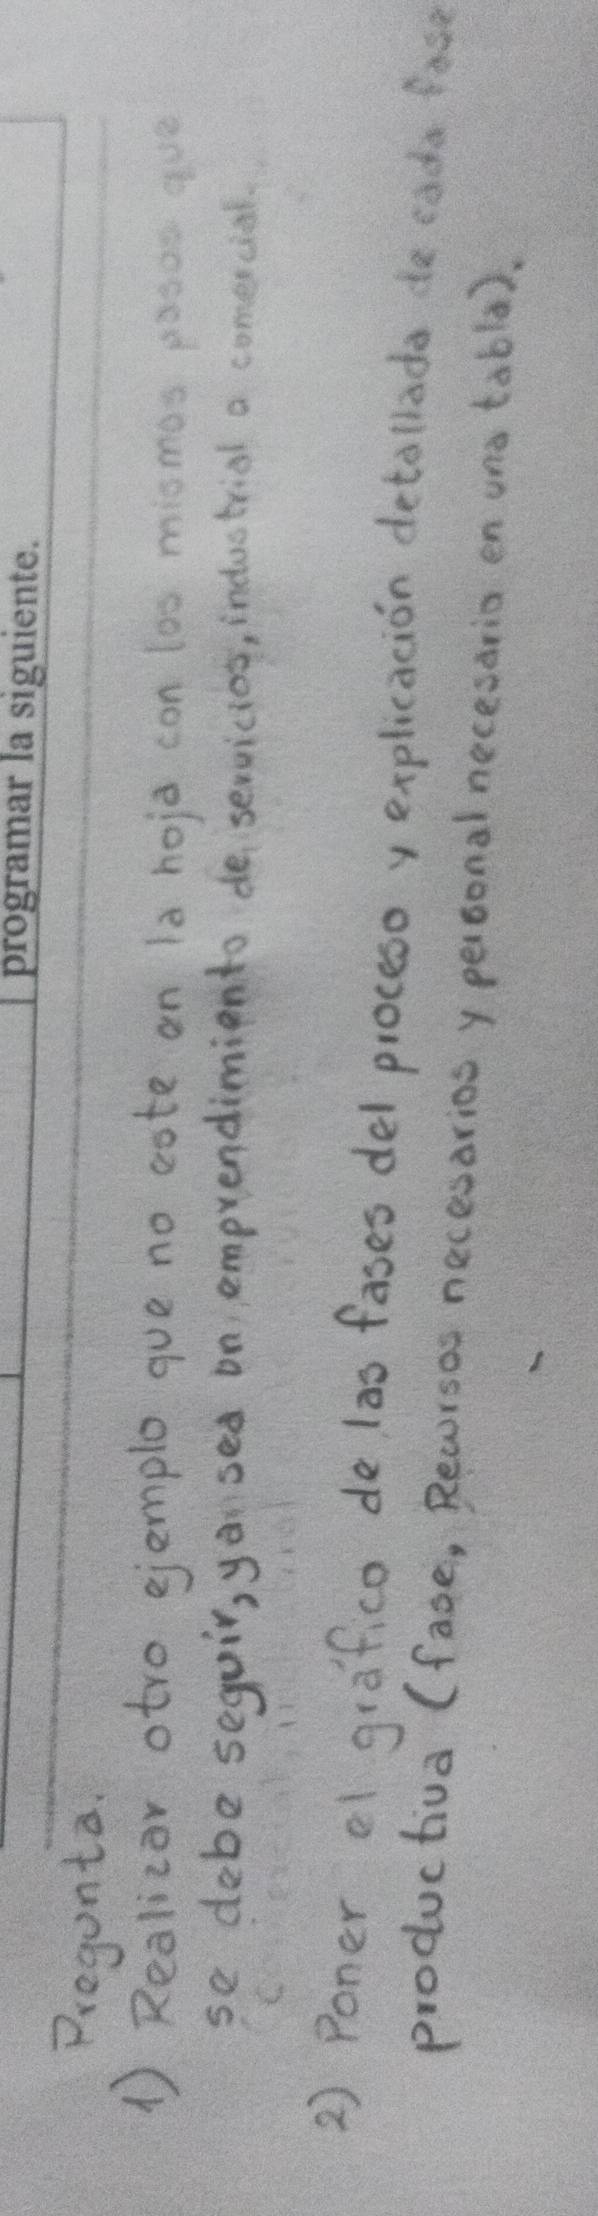 programar la siguiente.
Pregunta.
1) Realizar otro ejemplo que no este en la hoja con los mismos pasos que
se debe seguir, ya sea un emprendimiento de servicios, industrial o comercial.
2) Poner el gráfico de las fases del proceso y explicación detallada de cada fase
productiva (fase, Recursos necesarios y personal necesario en una tabla).